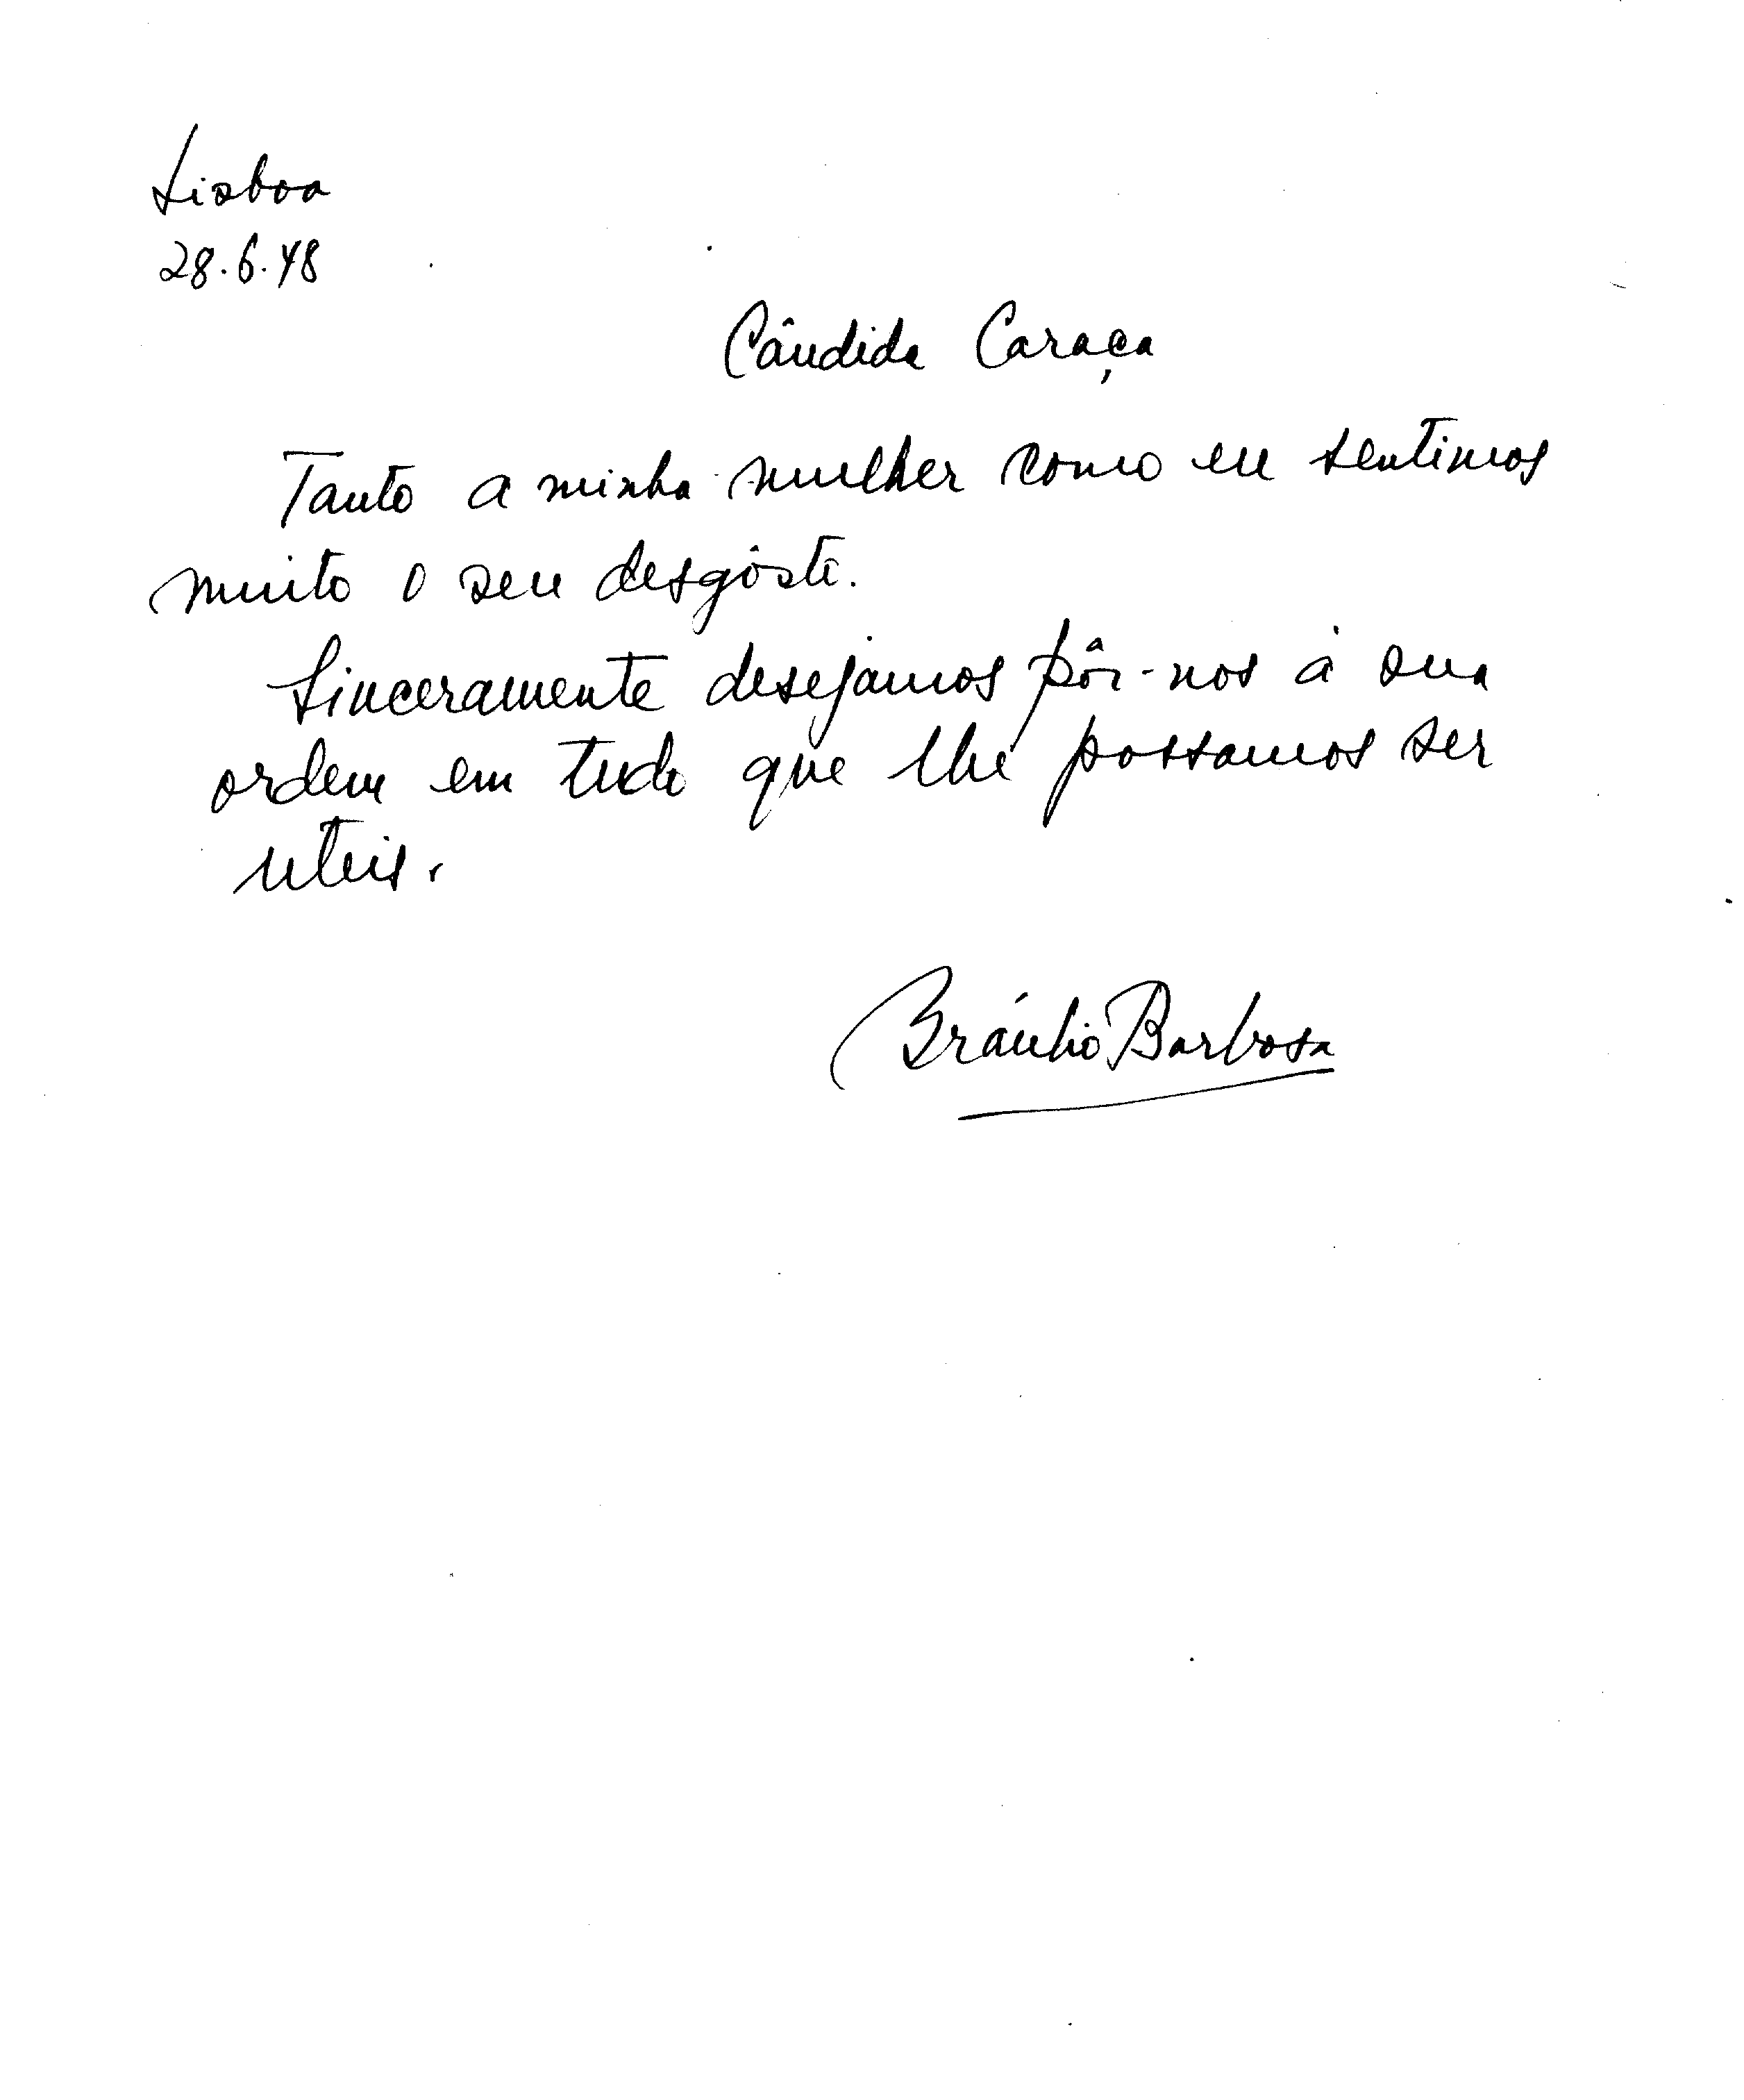 Lisboa
28.6.48
Cândida Caraça
Tanto a minha mulher como eu sentimos
muito o seu desgôsto.
Sinceramente desejamos pôr-nos à sua
ordem em tudo que lhe possamos ser
uteis.
Bráulio Barbosa